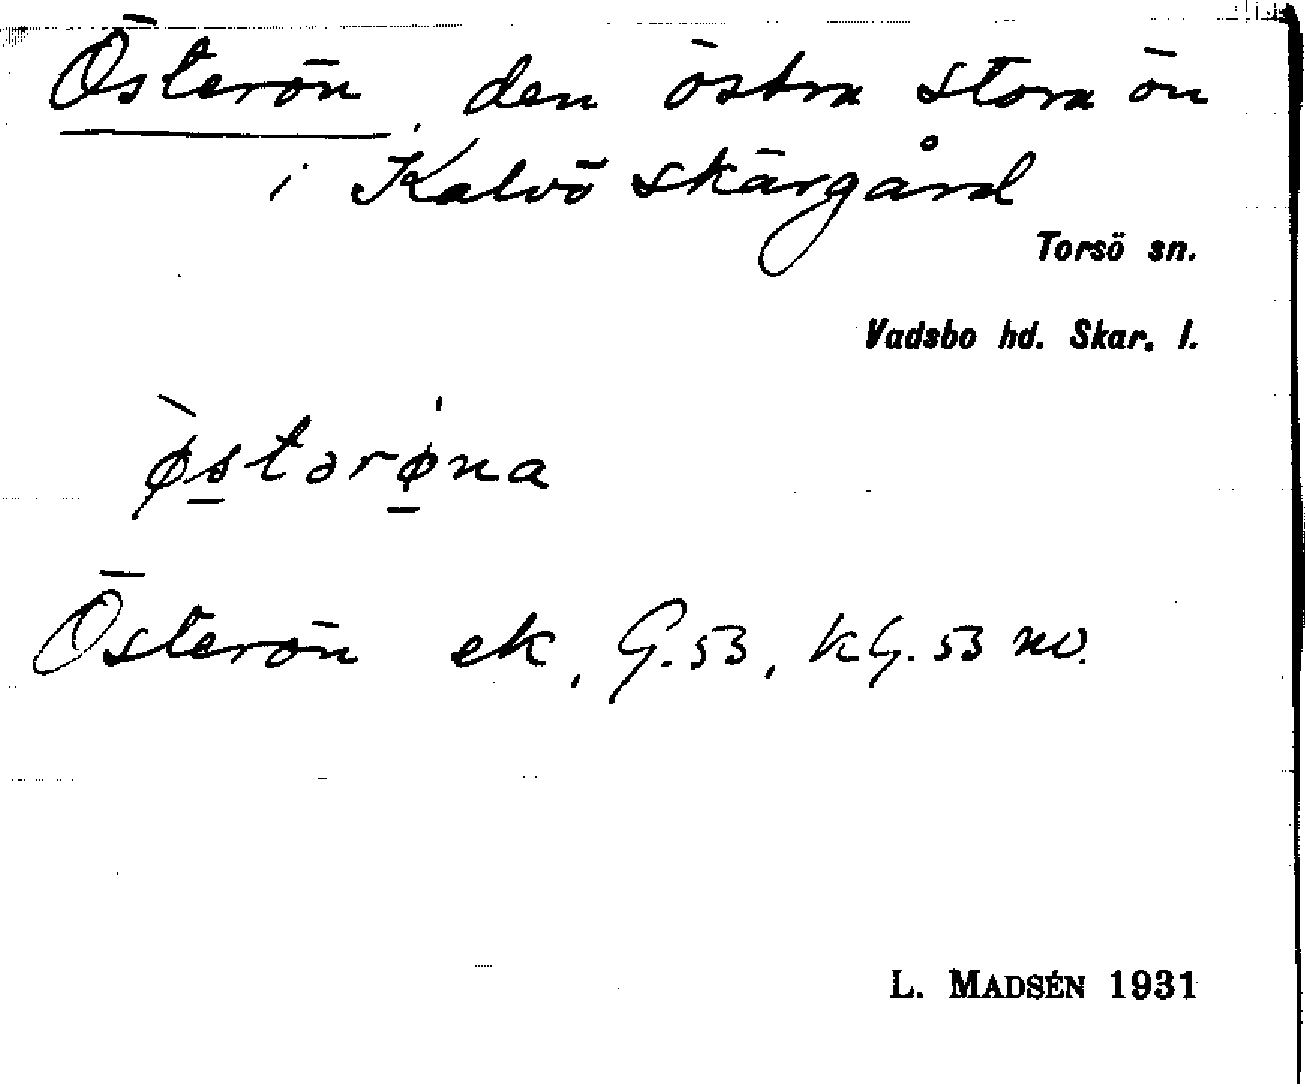 Österön, den östra stora ön
i Kalvö skärgård
Torsö sn.
Vadsbo hd. Skar. l.
ø̀stərø̍na
Österön ek, G.53, kG.53 no.
L. MADSÉN 1931